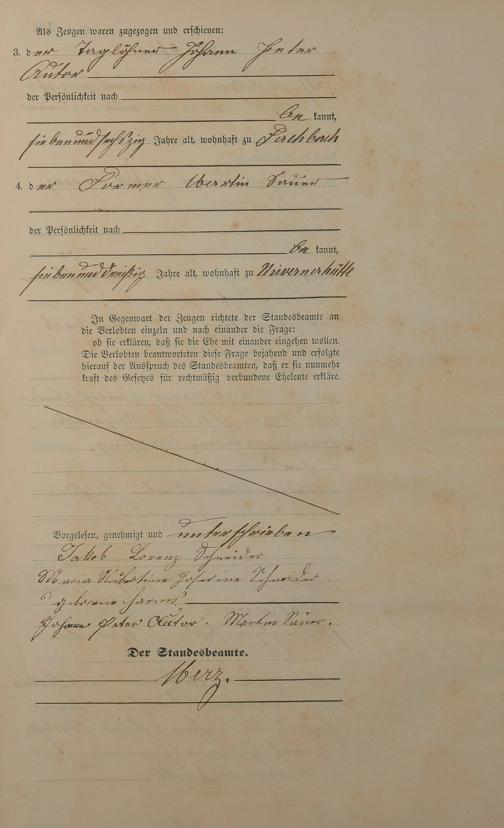 Als Zeugen waren zugezogen und erschienen:
3. der Taglöhner Johann Peter
Autor
der Persönlichkeit nach
be kannt,
siebenundsechzig Jahre alt, wohnhaft zu Fachbach
4. der Former Martin Sauer
der Persönlichkeit nach
be kannt,
siebenunddreißig Jahre alt, wohnhaft zu Nievernerhütte
In Gegenwart der Zeugen richtete der Standesbeamte an
die Verlobten einzeln und nach einander die Frage:
ob sie erklären, daß sie die Ehe mit einander eingehen wollen.
Die Verlobten beantworteten diese Frage bejahend und erfolgte
hierauf der Ausspruch des Standesbeamten, daß er sie nunmehr
kraft des Gesetzes für rechtmäßig verbundene Eheleute erkläre.
Vorgelesen, genehmigt und unterschrieben
Jakob Lorenz Schneider
Maria Josefine Schneider
geborene
Johann Peter Autor. Martin Sauer.
Der Standesbeamte.
Merz.